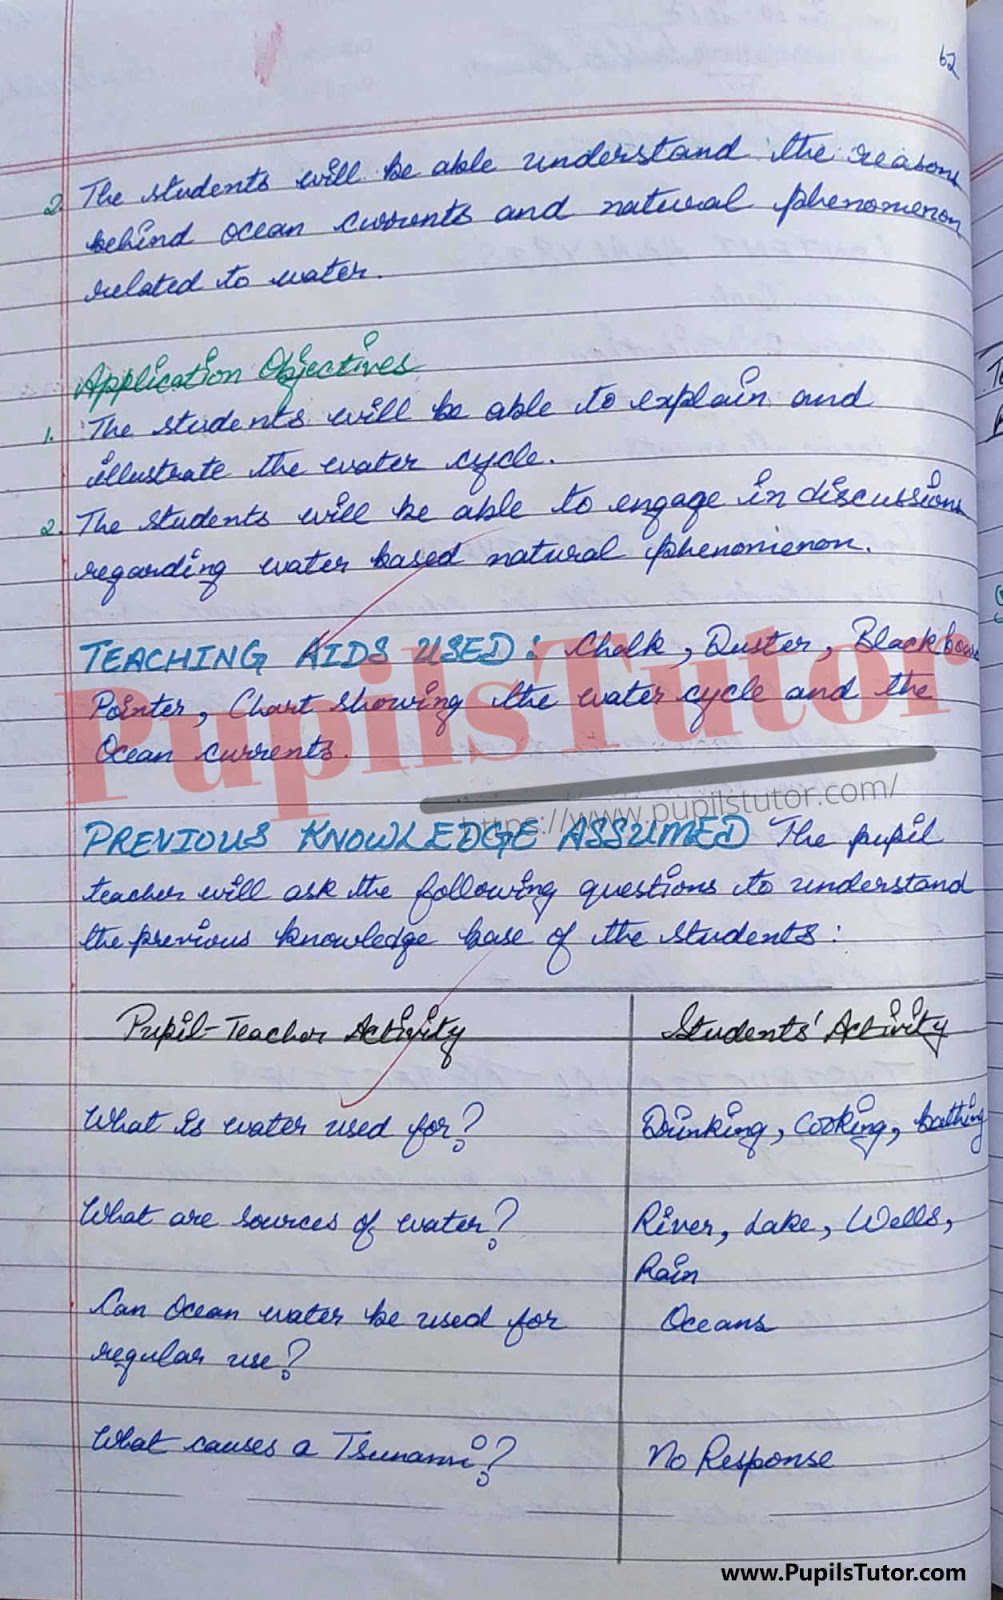 62
2. The students will be able understand the reasons
behind ocean currents and natural phenomenon
related to water.
Application Objectives
1. The students will be able to explain and
illustrate the water cycle.
2. The students will be able to engage in discussions
regarding water based natural phenomenon.
TEACHING AIDS USED: Chalk, Duster, Blackboard
Pointer, Chart showing the water cycle and the
Ocean currents.
PupilsTutor
https://www.pupilstutor.com/
PREVIOUS KNOWLEDGE ASSUMED The pupil
teacher will ask the following questions to understand
the previous knowledge base of the students:
Pupil-Teacher Activity Students' Activity
What is water used for? Drinking, Cooking, bathing
What are sources of water? River, Lake, Wells,
Rain
Can Ocean water be used for Oceans
regular use?
What causes a Tsunami? No Response
www.PupilsTutor.com